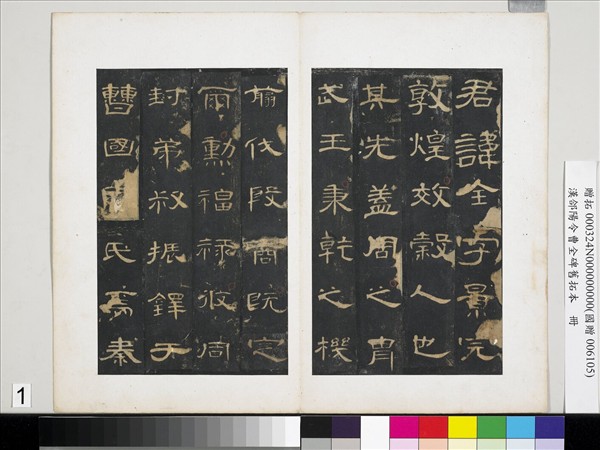 君諱全字景完
敦煌效穀人也
其先蓋周之胄
武王秉乾之機
翦伐殷商既定
爾勳福祿攸同
封弟叔振鐸于
曹國因氏焉秦
贈拓 000324N000000000(國贈 006105)
漢郃陽令曹全碑舊拓本 冊
1